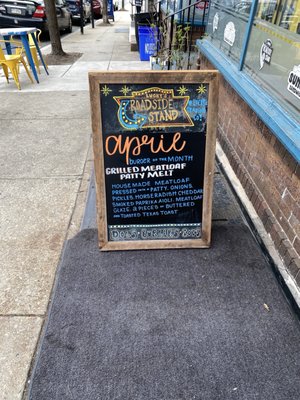 SMOKEY'S
ROADSIDE
STAND
aprie
BURGER OF THE MONTH
GRILLED MEATLOAF
PATTY MELT
HOUSE MADE MEATLOAF
PRESSED INTO A PATTY, ONIONS,
PICKLES, HORSERADISH CHEDDAR
SMOKED PAPRIKA AIOLI, MEATLOAF
GLAZE, 2 PIECES OF BUTTERED
AND TOASTED TEXAS TOAST